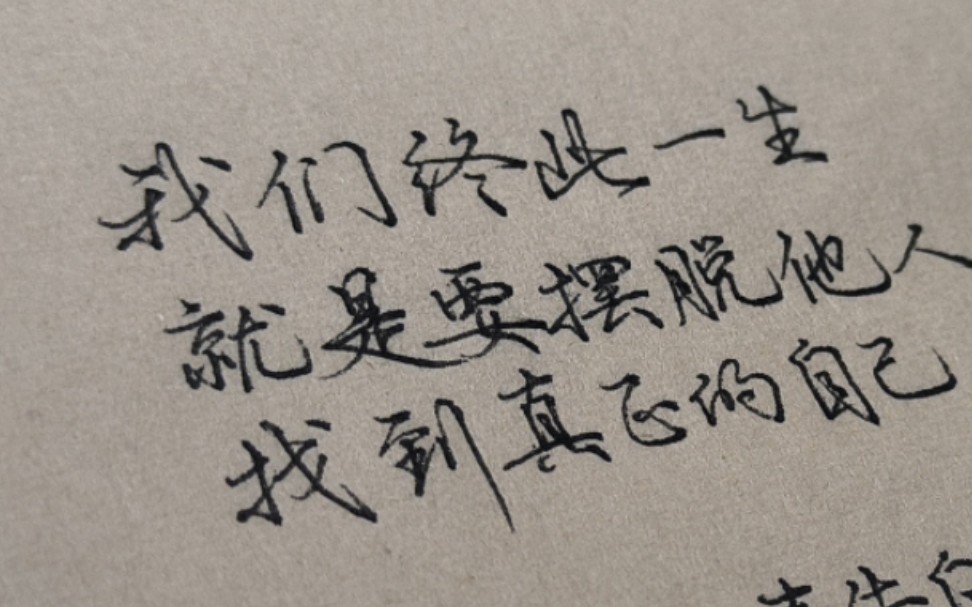 我们终此一生
就是要摆脱他人
找到真正的自己